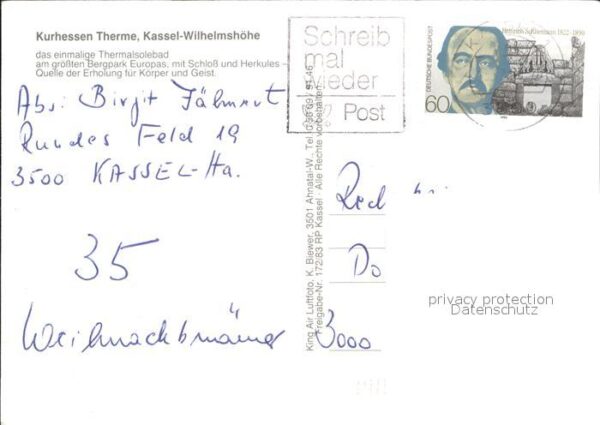 Kurhessen Therme, Kassel-Wilhelmshöhe
das einmalige Thermalsolebad
am größten Bergpark Europas, mit Schloß und Herkules –
Quelle der Erholung für Körper und Geist.
Abs: Birgit
Rundes Feld 19
3500 KASSEL-Ha.
35
Weihnachtsmänner
King Air Luftfoto, K. Biewer, 3501 Ahnatal-W., Tel.
Freigabe-Nr. 172/83 RP Kassel · Alle Rechte vorbehalten
Schreib
mal
wieder
Post
DEUTSCHE BUNDESPOST
Heinrich Schliemann 1822-1890
60
Red
Do
3000
privacy protection
Datenschutz